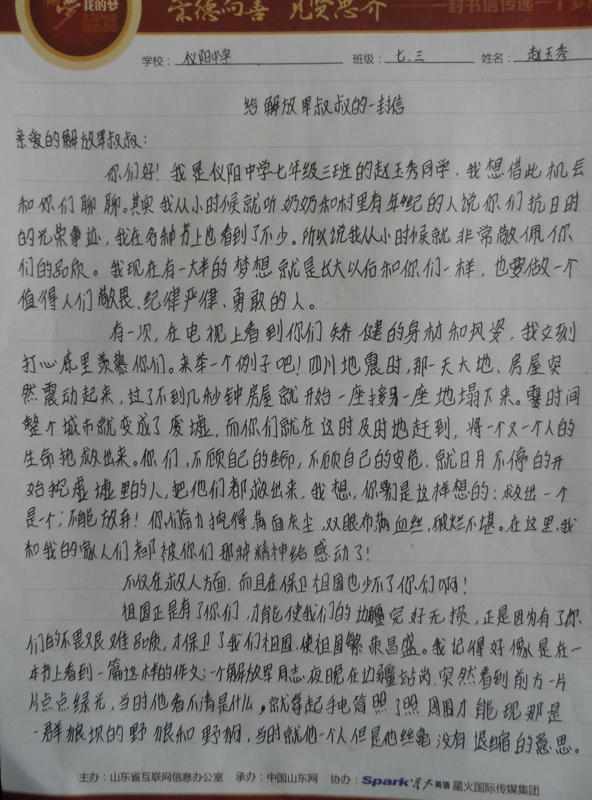 我的梦
崇德向善 见贤思齐 —— 一封书信传递一个梦
学校：仪阳中学 班级：七.三 姓名：赵玉秀
给解放军叔叔的一封信
亲爱的解放军叔叔：
你们好！我是仪阳中学七年级三班的赵玉秀同学，我想借此机会
和你们聊聊。其实我从小时候就听奶奶和村里有年纪的人说你们抗日时
的光荣事迹，我在各种书上也看到了不少。所以说我从小时候就非常敬佩你
们的品质。我现在有一大半的梦想就是长大以后和你们一样，也要做一个
值得人们敬畏、纪律严律、勇敢的人。
有一次，在电视上看到你们矫健的身材和风姿，我立刻
打心底里羡慕你们。来举一个例子吧！四川地震时，那一天大地、房屋突
然震动起来，过了不到几秒钟房屋就开始一座接另一座地塌下来。霎时间
整个城市就变成了废墟，而你们就在这时及时地赶到，将一个又一个人的
生命抢救出来。你们，不顾自己的生命，不顾自己的安危，就日月不停的开
始挖虚墟里的人，把他们都救出来，我想，你们是这样想的：救出一个
是一个；不能放弃！你们奋力挖得满面灰尘，双眼布满血丝，破烂不堪。在这里，我
和我的家人们都被你们那种精神给感动了！
不仅在救人方面，而且在保卫祖国也少不了你们啊！
祖国正是有了你们，才能使我们的边疆完好无损，正是因为有了你
们的不畏艰难品质，才保卫了我们祖国，使祖国繁荣昌盛。我记得好像是在一
本书上看到一篇这样的作文：一个解放军同志，夜晚在边疆站岗，突然看到前方一片
片点点绿光，当时他看不清是什么，就举起手电筒照了照周围才能现那是
一群狼坝的野狼和野狗，当时就他一个人但是他丝毫没有退缩的意思。
主办：山东省互联网信息办公室 承办：中国山东网 协办：Spark 星火英语 星火国际传媒集团